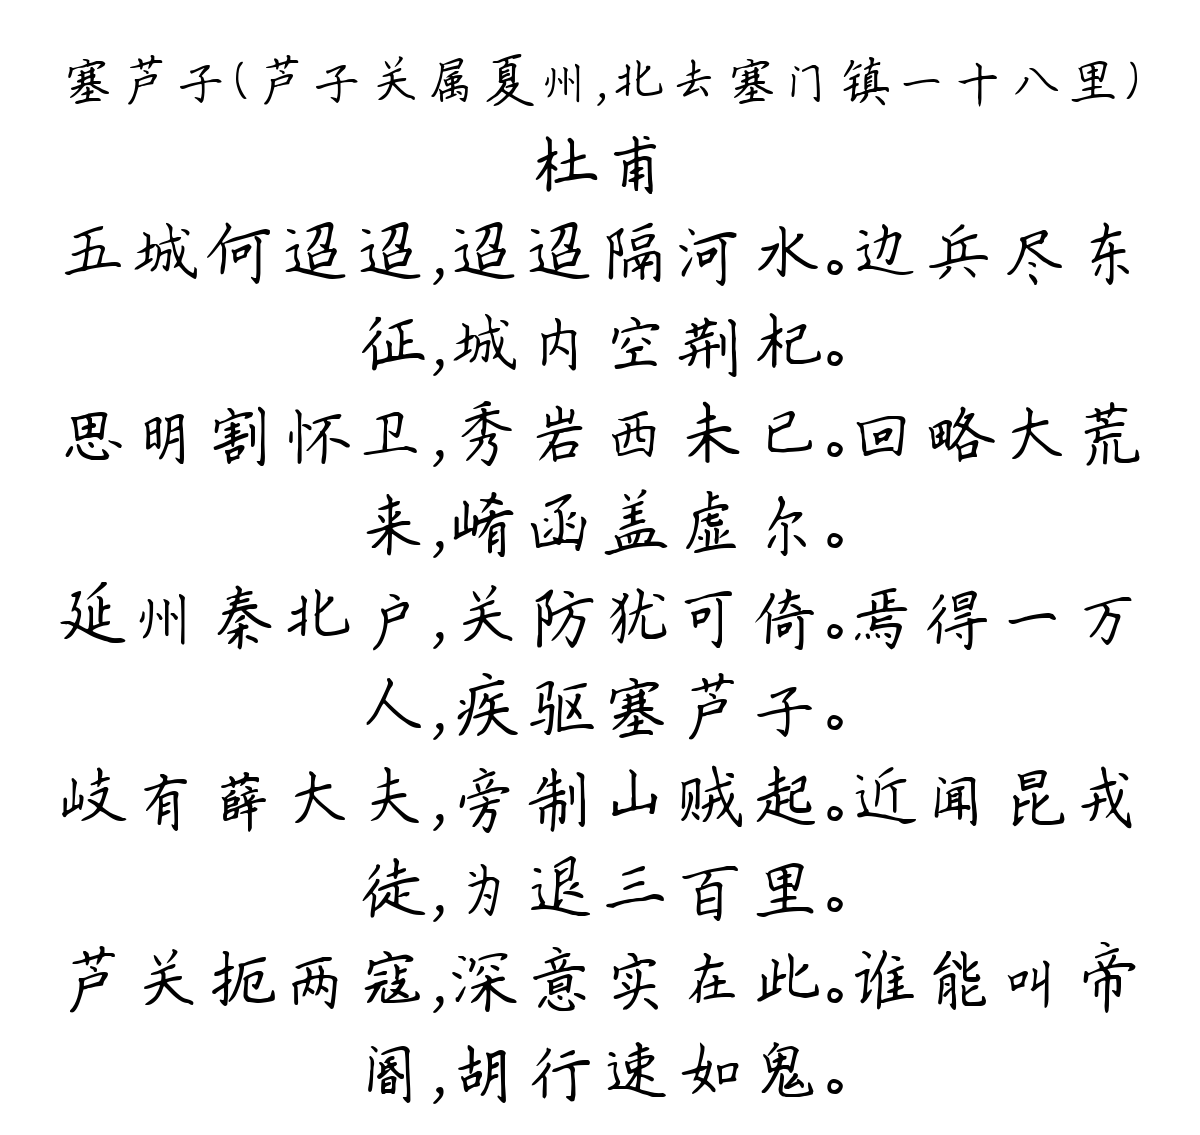 塞芦子(芦子关属夏州,北去塞门镇一十八里)
杜甫
五城何迢迢,迢迢隔河水。边兵尽东
征,城内空荆杞。
思明割怀卫,秀岩西未已。回略大荒
来,崤函盖虚尔。
延州秦北户,关防犹可倚。焉得一万
人,疾驱塞芦子。
岐有薛大夫,旁制山贼起。近闻昆戎
徒,为退三百里。
芦关扼两寇,深意实在此。谁能叫帝
阍,胡行速如鬼。